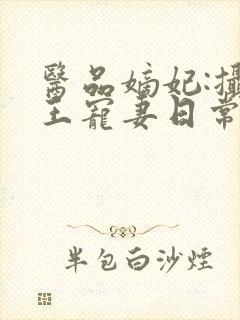 醫品嫡妃:攝
王寵妻日常
半包白沙煙